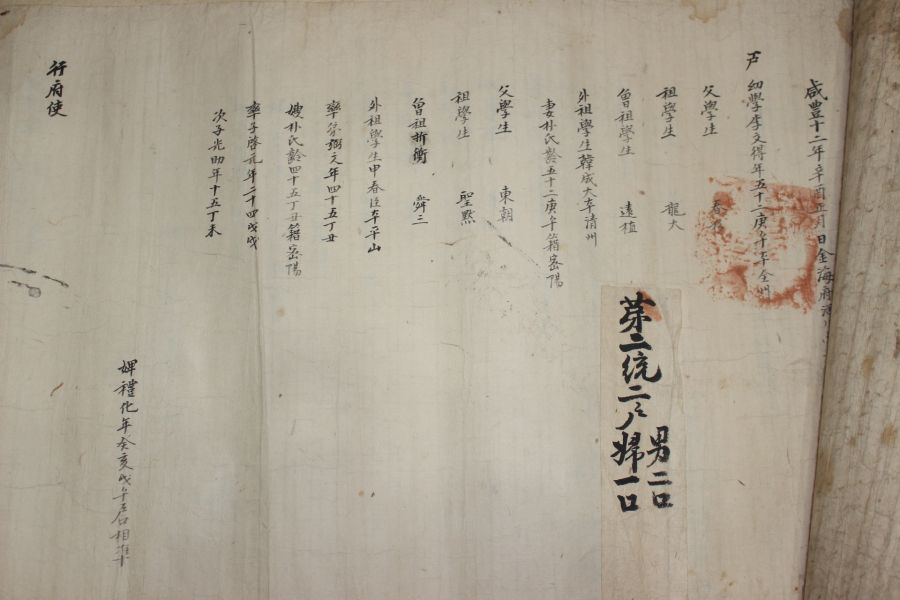 咸豐十二年辛酉正月 日金海府
戶 幼學李文得年五十二庚午本全州
父學生
祖學生 龍大
曾祖學生 遠植
外祖學生韓成大本清州
妻朴氏齡五十二庚午籍密陽
父學生 東朝
祖學生 聖默
曾祖折衝 舜三
外祖學生申春 本平山
率弟 文年四十五丁丑
嫂朴氏齡四十五丁丑籍密陽
率子啓元年二十四戊戌
次子光助年十五丁未
婢禮化年癸亥戊午戶口相準
行府使
第二統二戶 男二口
婦一口